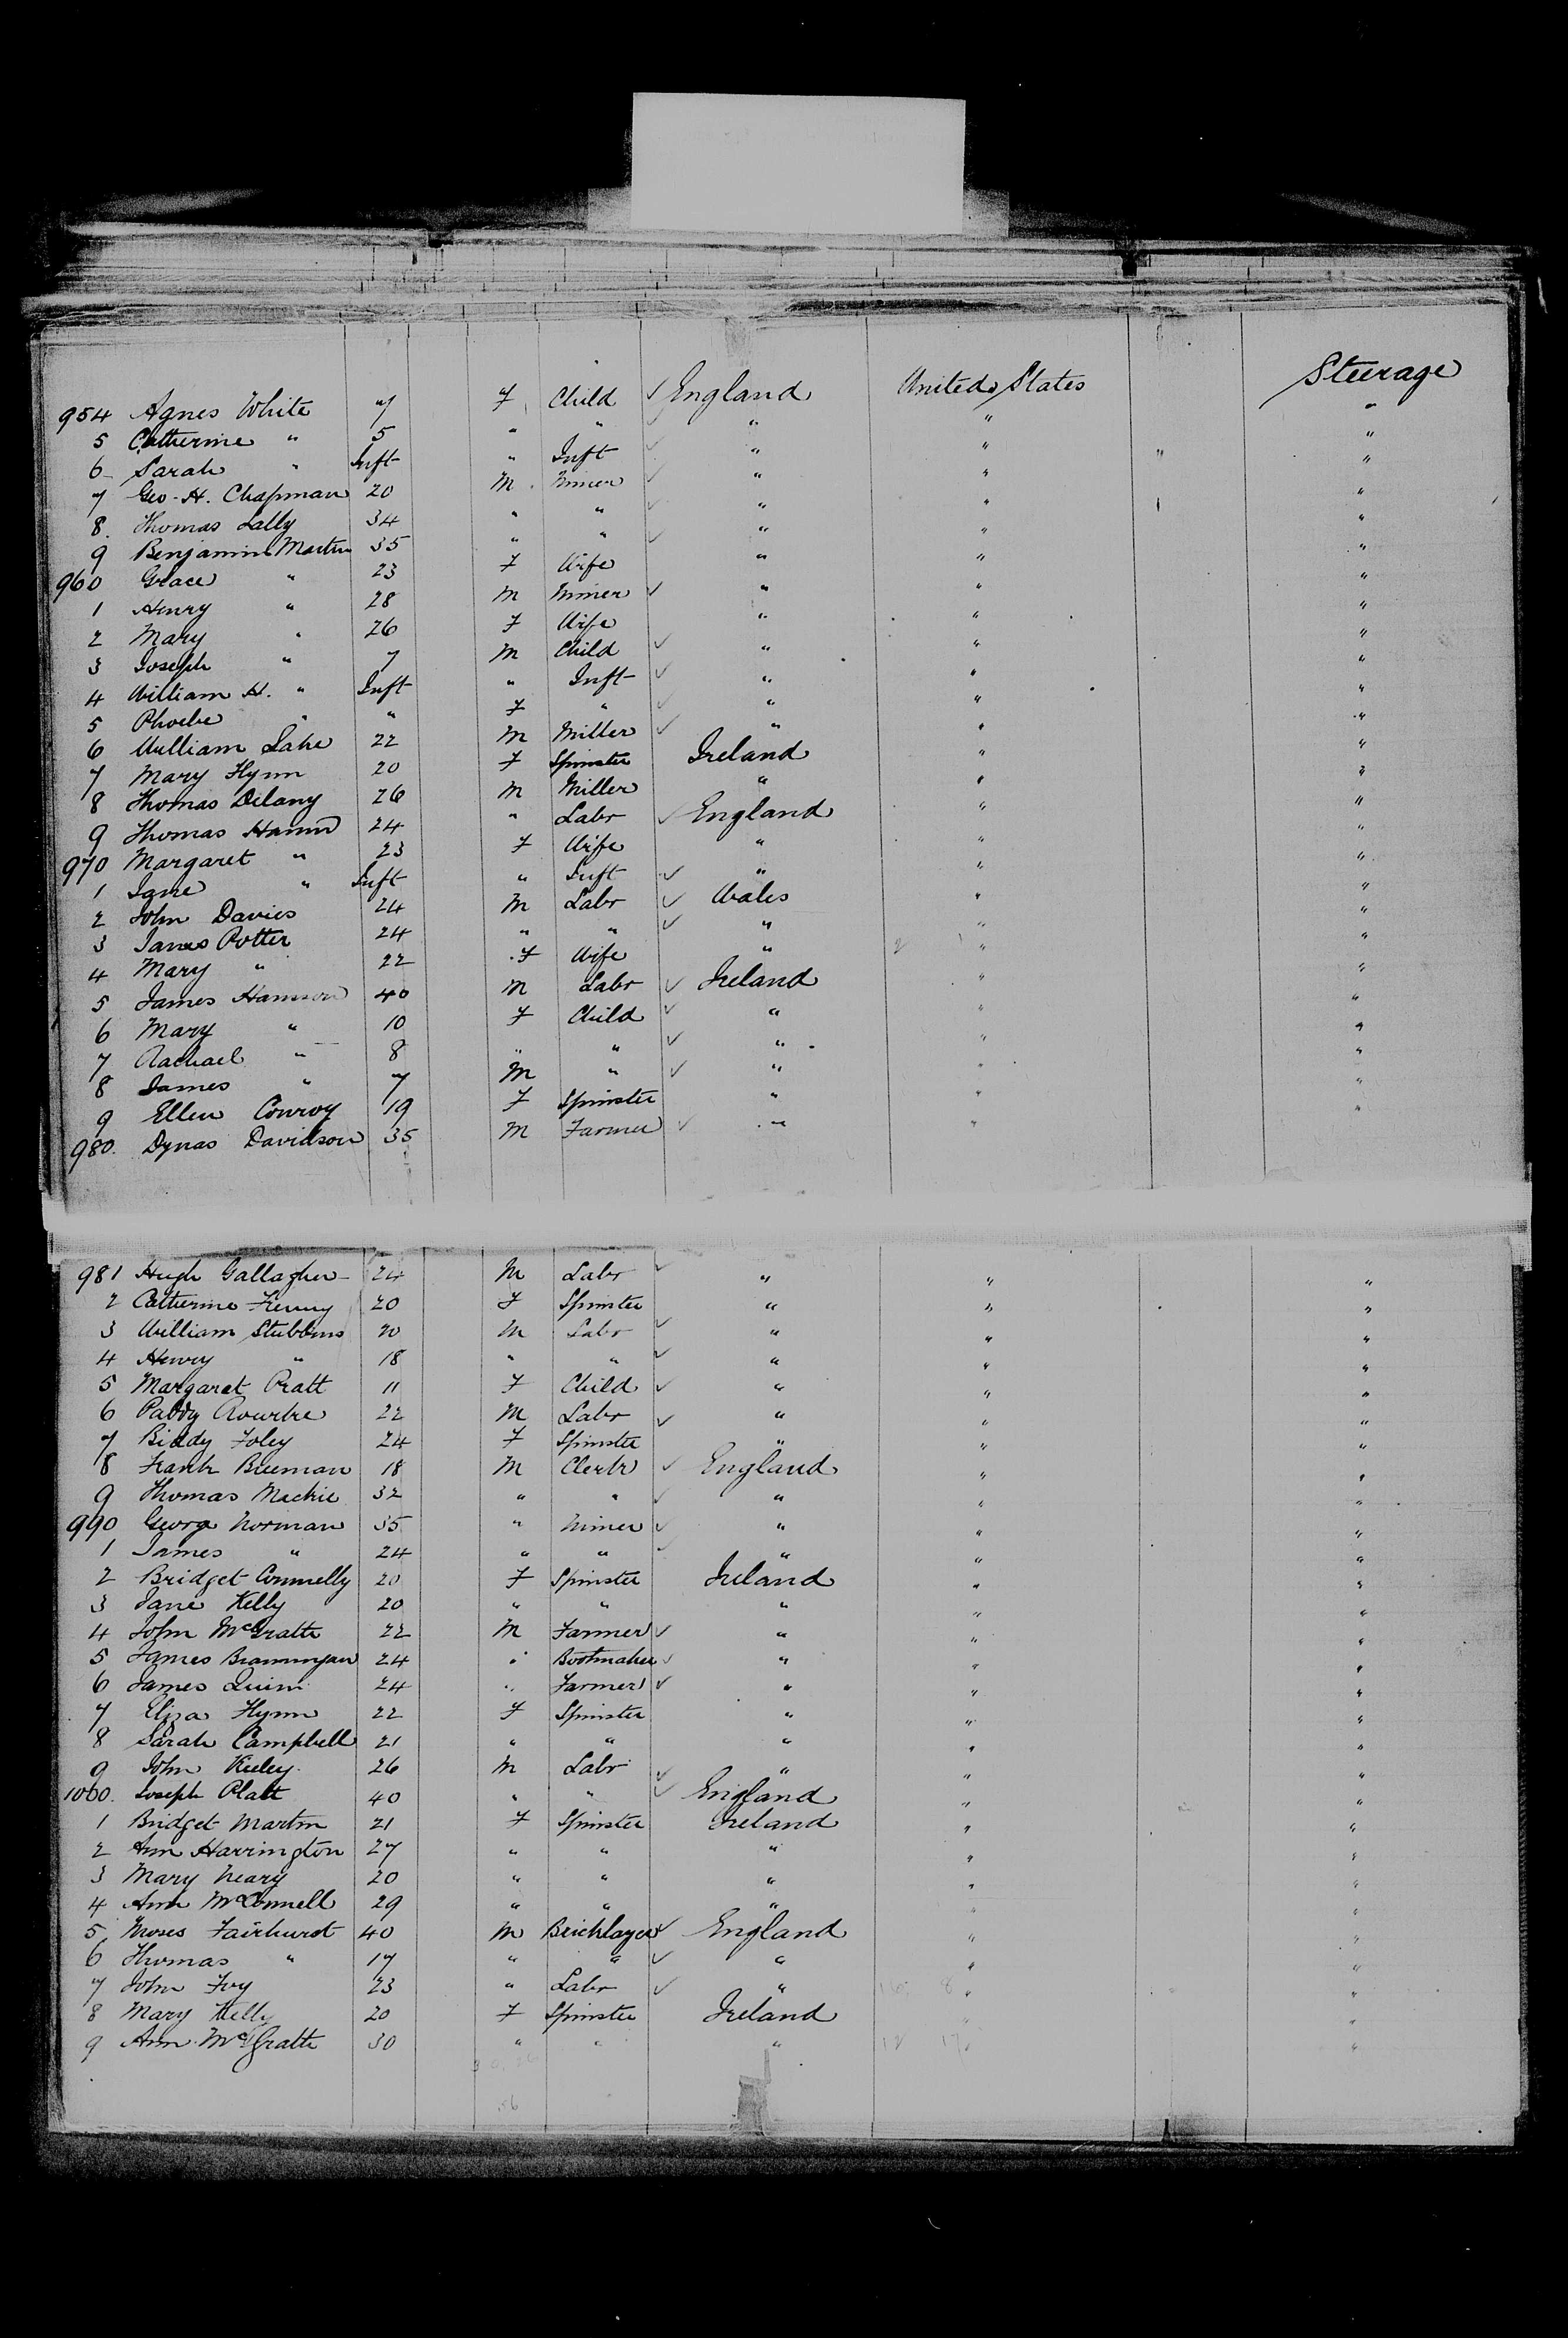 954 Agnes White 7 F Child ✓ England United States Steerage
5 Catherine " 5 " " ✓ " " "
6 Sarah " Inft " Inft ✓ " " "
7 Geo. H. Chapman 20 M Miner ✓ " " "
8 Thomas Lally 34 " " ✓ " " "
9 Benjamin Martin 35 " " ✓ " " "
960 Grace " 23 F Wife " " "
1 Henry " 28 M Miner ✓ " " "
2 Mary " 26 F Wife " " "
3 Joseph " 7 M Child ✓ " " "
4 William H. " Inft " Inft ✓ " " "
5 Phoebe " " F " ✓ " " "
6 William Lake 22 M Miller ✓ " " "
7 Mary Flynn 20 F Spinster Ireland " "
8 Thomas Delany 26 M Miller " " "
9 Thomas 24 " Labr ✓ England " "
970 Margaret " 23 F Wife " " "
1 Jane " Inft " Inft ✓ " " "
2 John Davies 24 M Labr ✓ Wales " "
3 James Potter 24 " " ✓ " " "
4 Mary " 22 F Wife " " "
5 James 40 M Labr ✓ Ireland " "
6 Mary " 10 F Child ✓ " " "
7 Rachael " 8 " " ✓ " " "
8 James " 7 M " ✓ " " "
9 Ellen Conroy 19 F Spinster " " "
980. Dynas Davidson 35 M Farmer ✓ " "
981 Hugh Gallagher 24 M Labr ✓ " " "
2 Catherine 20 F Spinster " " "
3 William Stubbins 20 M Labr ✓ " " "
4 Henry " 18 " " ✓ " " "
5 Margaret Pratt 11 F Child ✓ " " "
6 Paddy Rourke 22 M Labr ✓ " " "
7 Biddy Foley 24 F Spinster " " "
8 Frank 18 M Clerk ✓ England " "
9 Thomas Mackie 32 " " ✓ " " "
990 Georg Norman 35 " Miner ✓ " " "
1 James " 24 " " ✓ " " "
2 Bridget Connelly 20 F Spinster Ireland " "
3 Jane Kelly 20 " " " " "
4 John McGrath 22 M Farmer ✓ " " "
5 James 24 " Bootmaker ✓ " " "
6 James Quinn 24 " Farmer ✓ " " "
7 Eliza Flynn 22 F Spinster " " "
8 Sarah Campbell 21 " " " " "
9 John 26 M Labr ✓ " " "
1000. Joseph Platt 40 " " ✓ England " "
1 Bridget Martin 21 F Spinster Ireland " "
2 Ann Harrington 27 " " " " "
3 Mary Neary 20 " " " " "
4 Ann McConnell 29 " " " " "
5 Moses Fairhurst 40 M Bricklayer ✓ England " "
6 Thomas " 17 " " ✓ " " "
7 John 23 " Labr ✓ " " "
8 Mary Kelly 20 F Spinster Ireland " "
9 Ann McGrath 30 " " " "